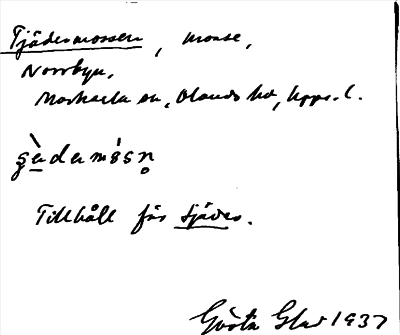 Tjädermossen, mosse,
Norrbyn,
Morkarla sn, Olands hd, Upps. l.
Tillhåll för tjäder.
Gösta 1937